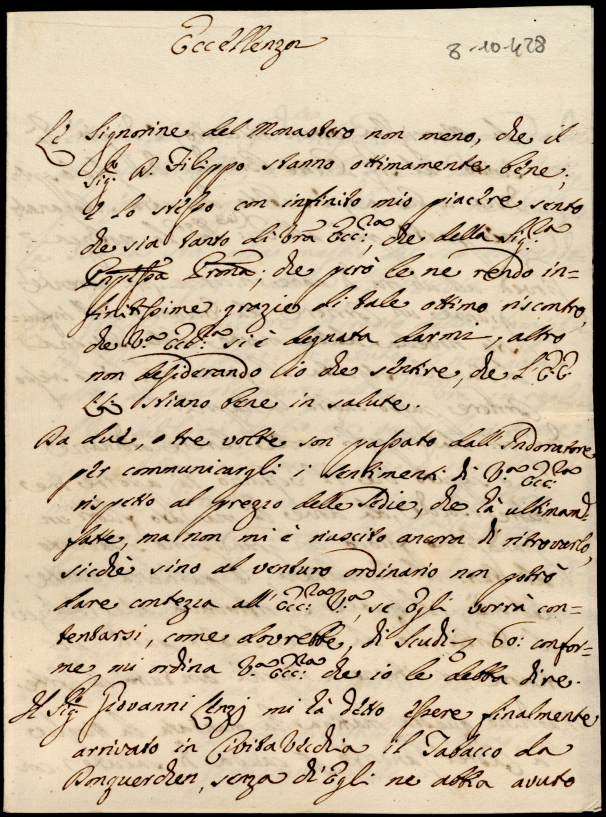 Eccellenza
8-10-428
Le Signorine del Monastero non meno, che il
Sig.r D. Filippo stanno ottimamente bene;
e lo stesso con infinito mio piacere sento
che sia tanto di Vra Ecc:za, che della Sig.ra
Prnpessa Prona; che però le ne rendo in=
finitissime grazie di tale ottimo riscontro,
che V.a Ecc:za si è degnata darmi, altro
non desiderando io che sentire, che L'EE
LL: stiano bene in salute.
Da due, o tre volte son passato dall'Indoratore
per communicargli i sentimenti di V.a Ecc:za
rispetto al prezzo delle Sedie, che hà ultimam.te
fatte, ma non mi è riuscito ancora di ritrovarlo,
sicchè sino al venturo ordinario non potrò
dare contezza all'Ecc:za V.a, se Egli vorrà con=
tentarsi, come dovrebbe, di Scudi 60: confor=
me mi ordina V.a Ecc:za che io le debba dire.
Il Sig.r Giovanni Lenzj mi hà detto essere finalmente
arrivato in CivitaVecchia il Tabacco da
Donquerchen, senza ch'Egli ne abbia avuto